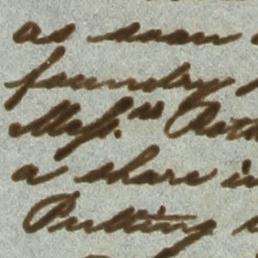 as soon
foundry
Mess.rs Roth
a share in
Putting